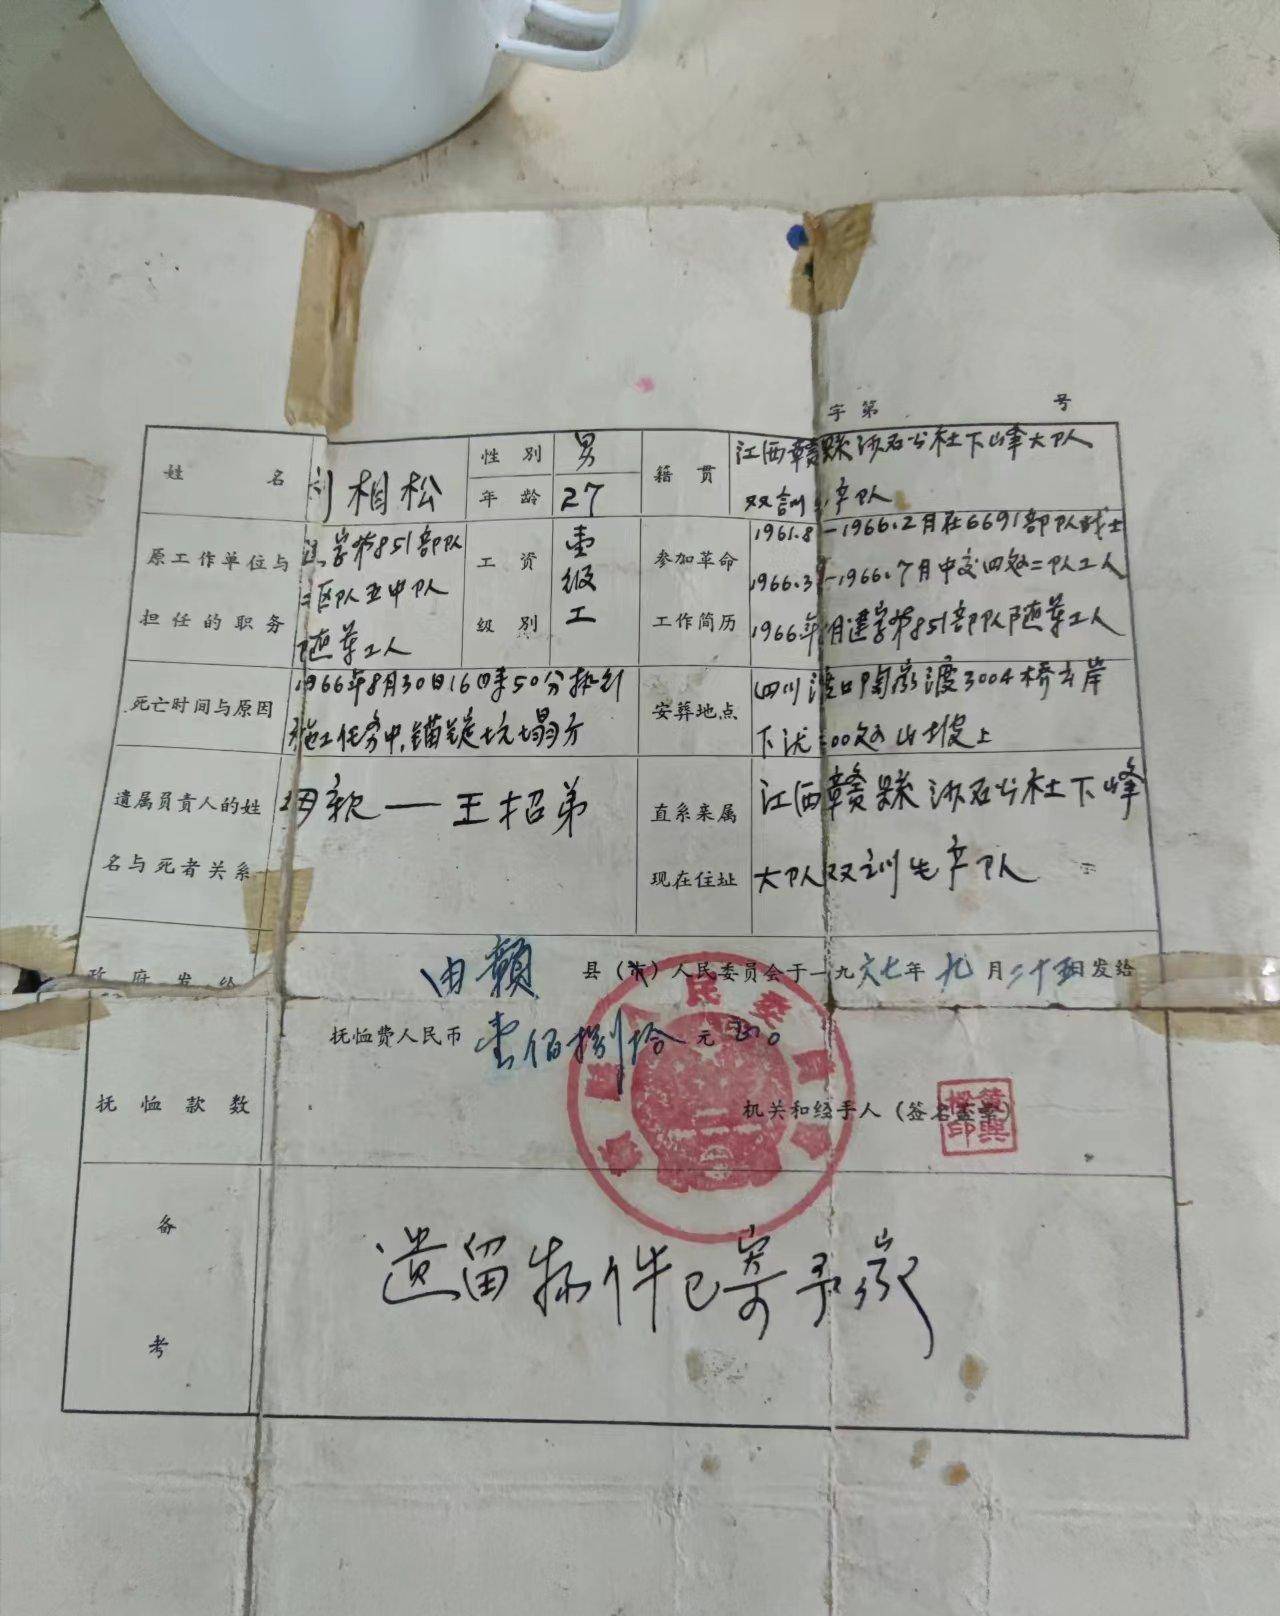 字第 号
姓名 刘相松 性别 男 籍贯 江西赣县沙石公社下峰大队
年龄 27 双訓生产队
原工作单位与担任的职务 建字第851部队
二区队五中队
随军工人
工资级别 壹级工
参加革命工作简历 1961.8—1966.2月在6691部队战士
1966.3—1966.7月中交四处二队工人
1966年8月建字第851部队随军工人
死亡时间与原因 1966年8月30日16时50分执行
施工任务中,锚碇坑塌方
安葬地点 四川渡口陶家渡3004桥左岸
下沈200处山坡上
遗属负责人的姓名与死者关系 母亲—王招弟
直系亲属现在住址 江西赣县沙石公社下峰
大队双训生产队
政府发给 由赣 县(市)人民委员会于一九六七年九月二十五日发给
抚恤费人民币 壹佰捌拾 元
抚恤款数 机关和经手人(签名盖章)
备考 遗留物件已寄予家